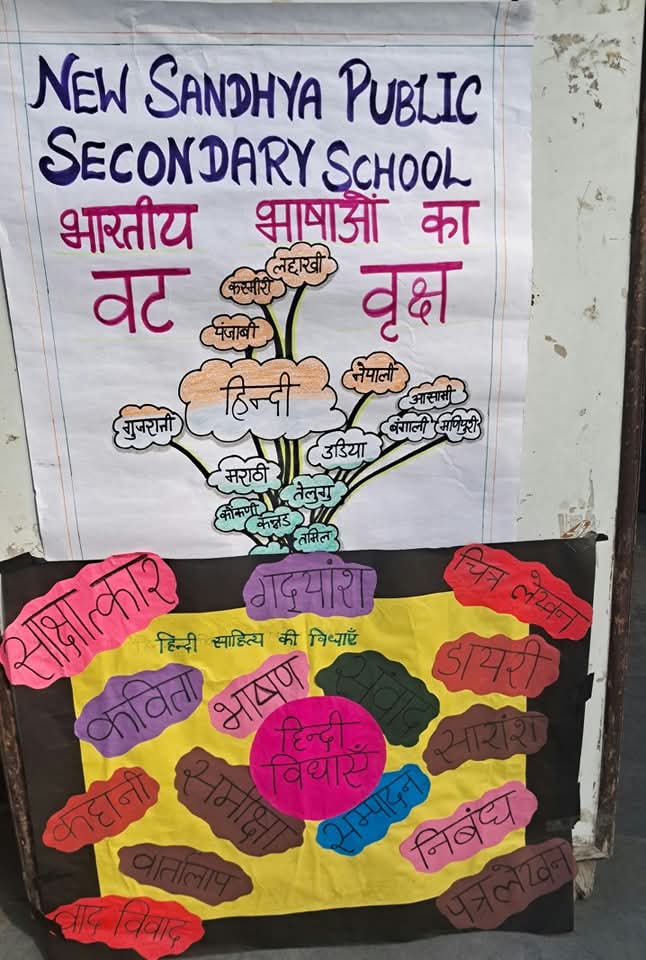 NEW SANDHYA PUBLIC
SECONDARY SCHOOL
भारतीय भाषाओं का
वट वृक्ष
लद्दाखी
कश्मीरी
पंजाबी
हिन्दी
नेपाली
आसामी
गुजराती
बंगाली
मणिपुरी
उडिया
मराठी
तेलुगु
कोंकणी
कन्नड
तमिल
साक्षात्कार
गद्यांश
चित्र लेखन
हिन्दी साहित्य की विधाएँ
डायरी
कविता
भाषण
संवाद
सारांश
हिन्दी
विधाएँ
कहानी
समीक्षा
सम्पादन
निबंध
वार्तालाप
पत्र लेखन
वाद विवाद